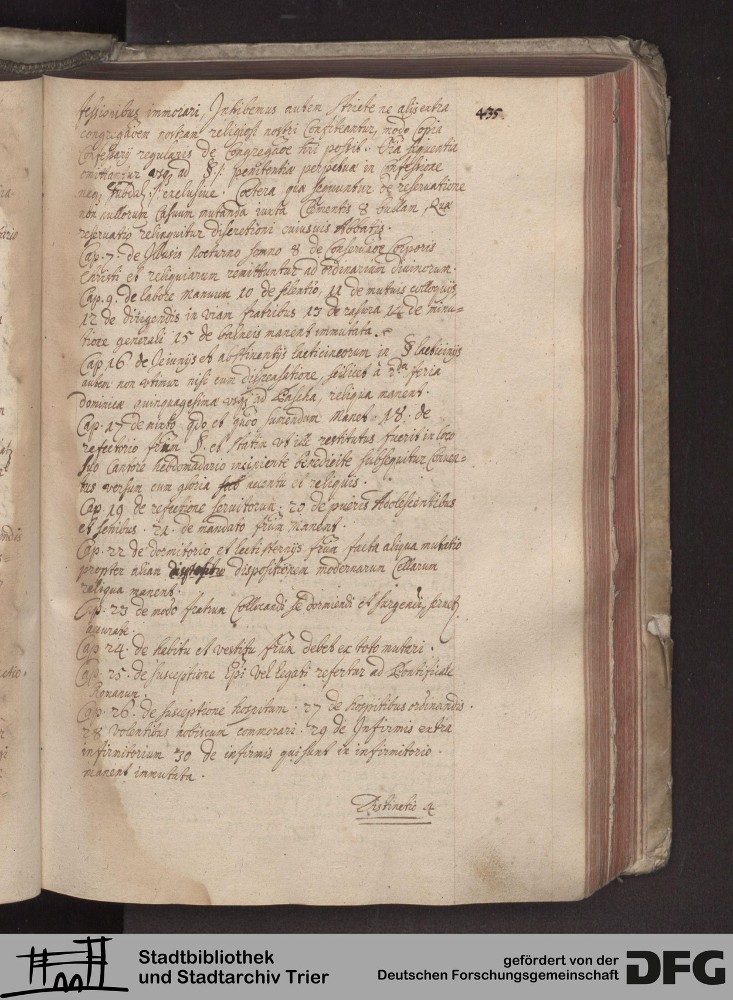 435.
fessionibus immorari, Inhibemus autem stricte ne alij extra
congregãoem nostram religiosi nostri confiteantur, modo Copia
Confessarij regularis de Congregãoe hñi possit. sequentia
omittantur usq, ad §. s. penitentiæ perpetuæ in confessione
neq, exclusive. Cætera qua sequuntur de reservatione
non nullorum Casuum mutanda iuxta Clementis 8 bullam, Quæ
reservatio relinquitur discretioni cuiusvis Abbatis.
Cap. 7. de Illusis Nocturno somno 8 de conservãoe Corporis
Christi et reliquiarum remittuntur ad ordinarium divinorum.
Cap. 9. de labore manuum 10 de silentio, 11 de mutuis colloquijs,
12 de dirigendis in viam fratribus 13 de rasura 14 de minu=
tione generali 15 de balneis manent immutata.
Cap 16 de Ieiunijs et abstinentijs lacticineorum in § lacticinijs
autem non utimur nisi cum dispensatione, scilicet à 2.da feria
Dominicæ quinquagesimæ usq, ad Pascha, reliqua manent.
Cap. 17 de mixto qdo et quõo sumendum Manet. 18. de
refectorio frũm §. et statim ut ill restitutus fuerit in loco
suo Cantore hebdomadario incipiente benedicite subsequitur Conuen=
tus versum cum gloria recentu et reliquis.
Cap 19 de refectione servitorum. 20 de pueris Adolescentibus
et senibus. 21. de mandato frũm Manent.
Cap. 22 de dormitorio et lectisternijs frũm facta aliqua mutatio
propter aliam dispositionem modernarum Cellarum
reliqua manent.
Cap. 23 de modo fratrum Collocandi se dormiendi et surgendi, servet,
accurate.
Cap 24. de habitu et vestitu frũm debet ex toto mutari.
Cap. 25. de susceptione Epi vel legati refertur ad Pontificale
Romanum.
Cap. 26. de susceptione hospitum. 27 de hospitibus ordinandis.
28 volentibus nobiscum commorari. 29 de Infirmis extra
infirmitorium 30 de infirmis qui sunt in infirmitorio.
manent immutata.
Distinctio 4
Stadtbibliothek
und Stadtarchiv Trier
gefördert von der
Deutschen Forschungsgemeinschaft
DFG